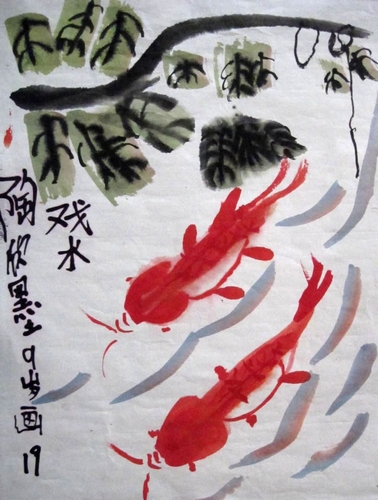 戏水
陶欣墨9岁画 19